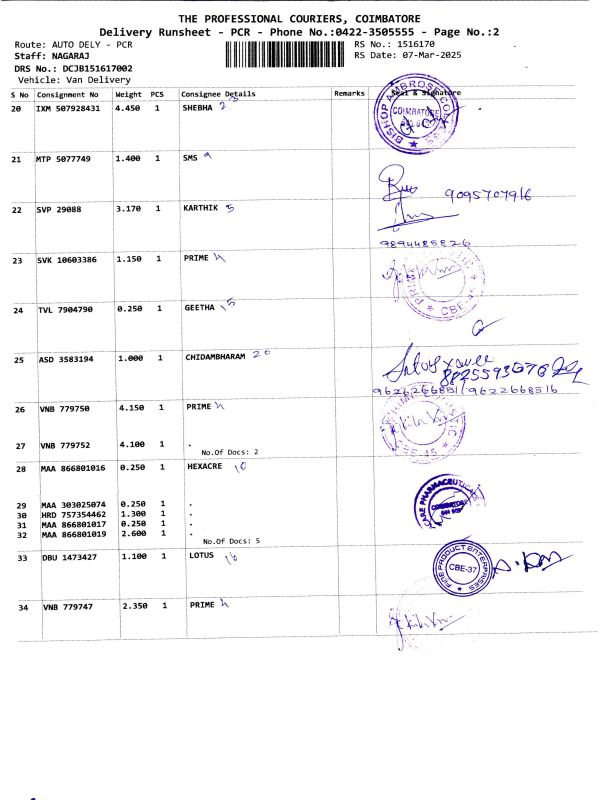 THE PROFESSIONAL COURIERS, COIMBATORE
Delivery Runsheet - PCR - Phone No.:0422-3505555 - Page No.:2
Route: AUTO DELY - PCR RS No.: 1516170
Staff: NAGARAJ RS Date: 07-Mar-2025
DRS No.: DCJB151617002
Vehicle: Van Delivery
S No Consignment No Weight PCS Consignee Details Remarks Seal & Signature
20 IXM 507928431 4.450 1 SHEBHA 23
BISHOP AMBROSE COIMBATORE
21 MTP 5077749 1.400 1 SMS 9
9095707916
22 SVP 29088 3.170 1 KARTHIK 5
9894485826
23 SVK 10603386 1.150 1 PRIME 4
CBE-45
24 TVL 7904790 0.250 1 GEETHA 15
25 ASD 3583194 1.000 1 CHIDAMBHARAM 20
8825593676
9626266851/9622668516
26 VNB 779750 4.150 1 PRIME 4
27 VNB 779752 4.100 1 .
No.Of Docs: 2
CBE-45
28 MAA 866801016 0.250 1 HEXACRE 10
29 MAA 303025074 0.250 1 .
30 HRD 757354462 1.300 1 .
31 MAA 866801017 0.250 1 .
32 MAA 866801019 2.600 1 .
No.Of Docs: 5
CARE PHARMACEUTICALS COIMBATORE
33 DBU 1473427 1.100 1 LOTUS 16
FINE PRODUCT ENTERPRISES CBE-37
34 VNB 779747 2.350 1 PRIME 4